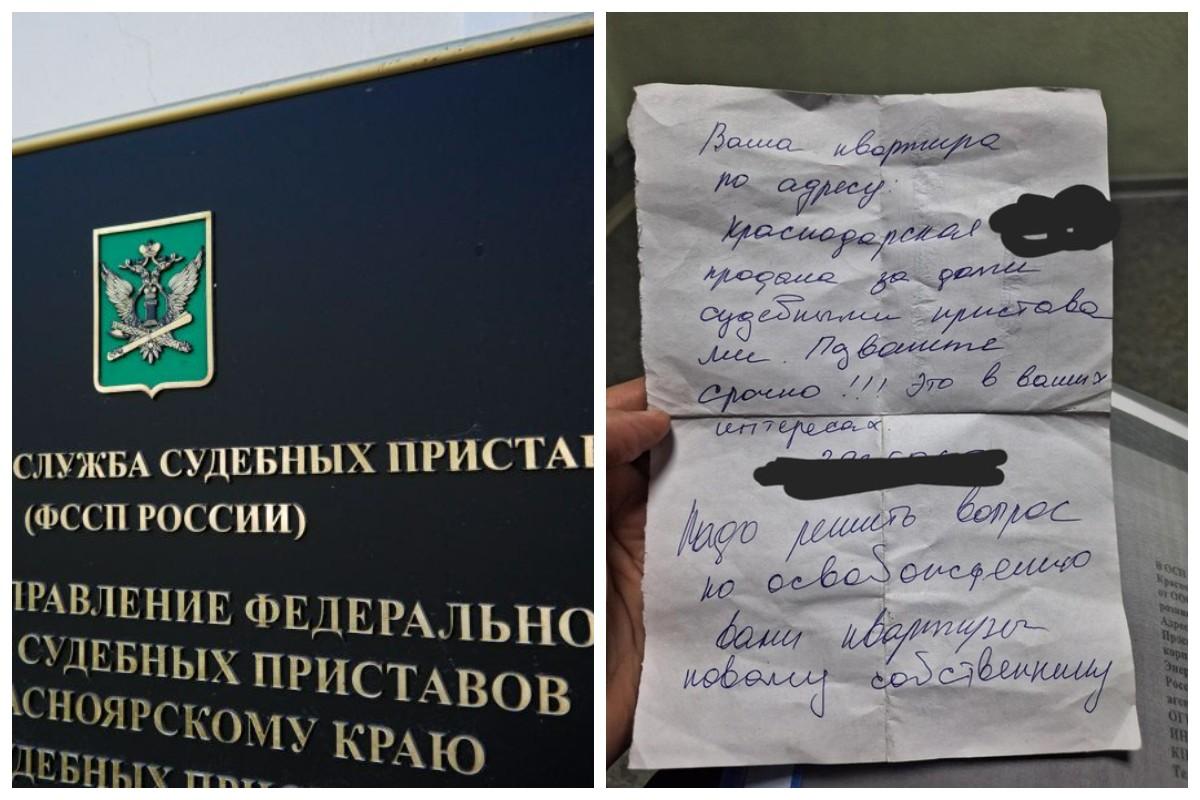 СЛУЖБА СУДЕБНЫХ ПРИСТАВ
(ФССП РОССИИ)
ПРАВЛЕНИЕ ФЕДЕРАЛЬНО
СУДЕБНЫХ ПРИСТАВОВ
АСНОЯРСКОМУ КРАЮ
ДЕБНЫХ ПРИС
Ваша квартира
по адресу:
Краснодарская
продана за долги
судебными пристава
ми. Позвоните
срочно!!! Это в ваших
интересах.
Надо решить вопрос
по освобождению
вами квартиры
новому собственнику
В ОСП
Красно
от ООО
Адрес
корп
Энер
Росс
аген
ОГ
ИН
КП
Те